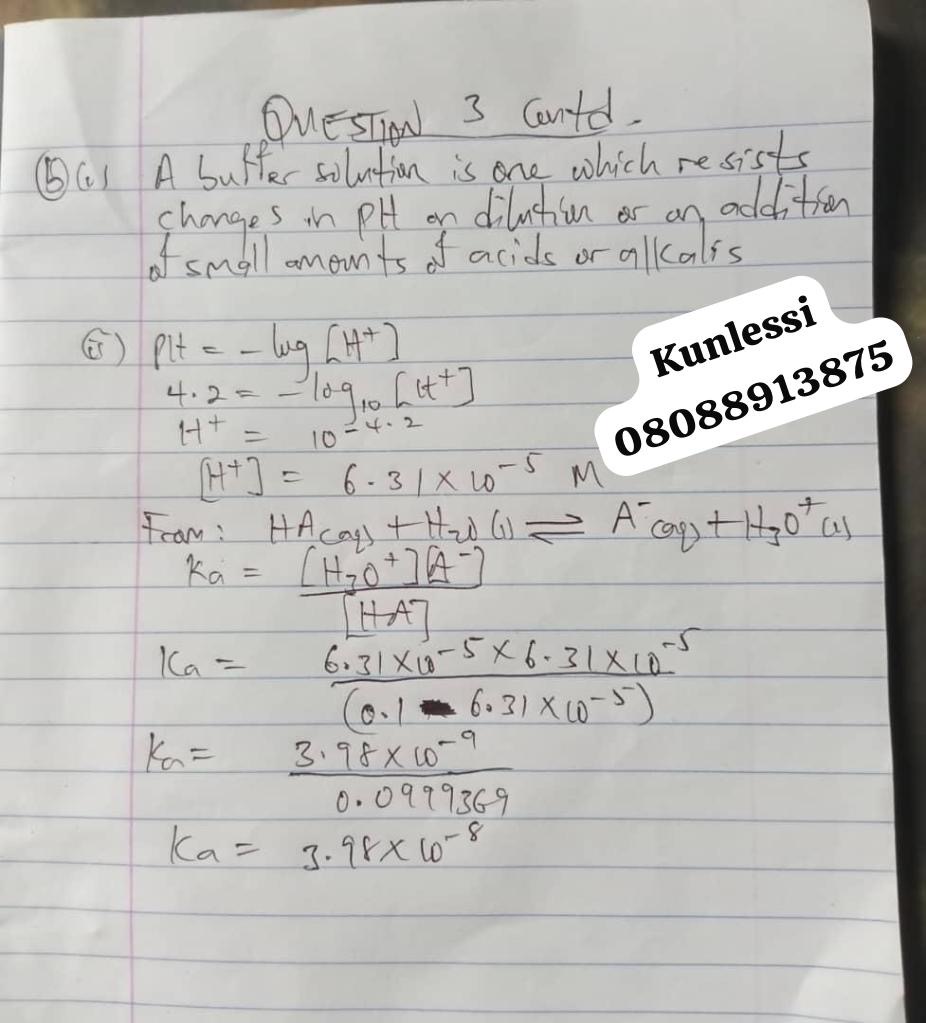 QUESTION 3 Contd.
(b)(i) A buffer solution is one which resists
changes in pH on dilution or on addition
of small amounts of acids or alkalis
(ii) pH = - log [H⁺]
4.2 = - log₁₀ [H⁺]
H⁺ = 10⁻⁴·²
[H⁺] = 6.31 × 10⁻⁵ M
Kunlessi
08088913875
From: HA(aq) + H₂O(l) ⇌ A⁻(aq) + H₃O⁺(l)
Ka = [H₃O⁺][A⁻]
[HA]
Ka = 6.31 × 10⁻⁵ × 6.31 × 10⁻⁵
(0.1 - 6.31 × 10⁻⁵)
Ka = 3.98 × 10⁻⁹
0.0999369
Ka = 3.98 × 10⁻⁸